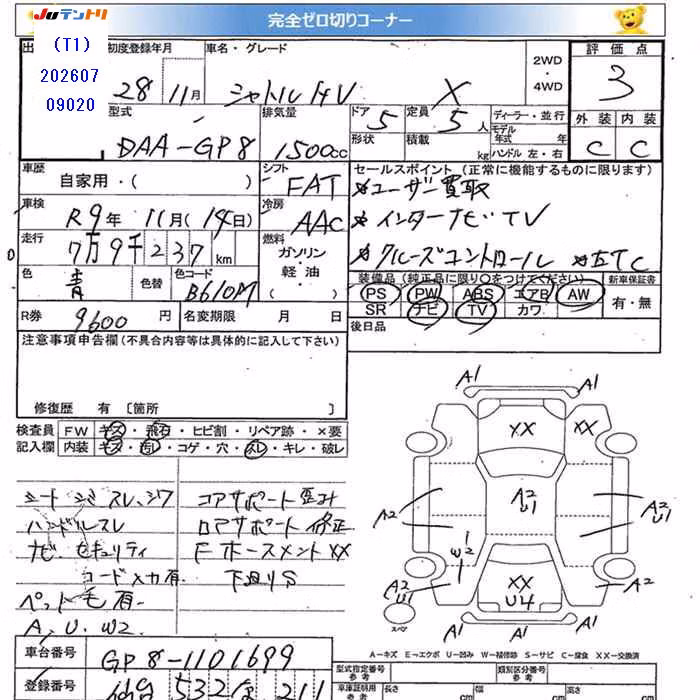 JUテントリ
完全ゼロ切りコーナー
(T1)
202607
09020
初度登録年月
車名・グレード
評価点
28 11月
シャトル HV X
2WD
・
4WD
3
型式
排気量
ドア 5
定員 5人
ディーラー・並行
モデル年式 年
ハンドル 左・右
形状
積載 kg
外装 内装
C C
DAA-GP8
1500cc
車歴
自家用・( )
シフト
FAT
セールスポイント(正常に機能するものに限ります)
ユーザー買取
車検
R9年 11月(14日)
冷房
AAC
インターナビ TV
走行
7万9千237km
燃料
ガソリン
軽油・
( )
クルーズコントロール ETC
色
青
色替
色コード
B610M
装備品(純正品に限り○をつけてください)
新車保証書
PS PW ABS エアB AW
SR ナビ TV カワ
有・無
R券
9600円
名変期限 月 日
後日品
注意事項申告欄(不具合内容等は具体的に記入して下さい)
修復歴 有 〔箇所 〕
検査員
記入欄
FW キズ・飛石・ヒビ割・リペア跡・×要
内装 キズ・汚レ・コゲ・穴・スレ・キレ・破レ
シート シミ スレ、シワ
ハンドルスレ
ナビ セキュリティ
コード入力有
ペット毛有
A、U、W2
コアサポート 歪み
ロアサポート 修正
Fホースメント XX
下廻りS
A1 A1
XX XX
A2
A2 U1
A2
A2 U1
W2
A2 U1
XX
U4
A2
A1 A1
スペア
A-キズ E-エクボ U-凹み W-補修跡 S-サビ C-腐食 XX-交換済
車台番号
GP8-1101699
登録番号
532 211
型式指定番号
参考
類別区分番号
参考
車庫証明用
参考
長さ cm
幅 cm
高さ cm